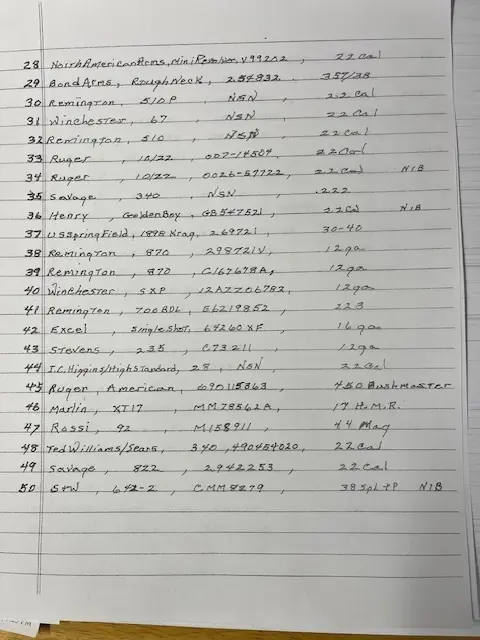 28 North American Arms, Mini Revolver, V99202, 22 Cal
29 Bond Arms, Rough Neck, 254832 357/38
30 Remington, 510 P, NSN, 22 Cal
31 Winchester, 67, NSN, 22 Cal
32 Remington, 510, NSN, 22 Cal
33 Ruger, 10/22, 007-14504, 22 Cal
34 Ruger, 10/22, 0026-57722, 22 Cal NIB
35 Savage, 340, NSN, .222
36 Henry, Golden Boy, GB547521, 22 Cal NIB
37 US Springfield, 1898 Krag, 269721, 30-40
38 Remington, 870, 298721V, 12ga
39 Remington, 870, C167678A, 12ga
40 Winchester, SXP, 12AZZ06782, 12ga
41 Remington, 700 BDL, E6219852, 223
42 Excel, Single Shot, 64260XF, 16ga
43 Stevens, 235, C73211, 12ga
44 J.C. Higgins/High Standard, 28, NSN, 22 Cal
45 Ruger, American, 690115363, 450 Bushmaster
46 Marlin, XT17, MM78562A, 17 H.M.R.
47 Rossi, 92, M158911, 44 Mag
48 Ted Williams/Sears, 3.40, 490454020, 22 Cal
49 Savage, 822, 2942253, 22 Cal
50 S+W, 642-2, CMM8279, 38 Spl +P NIB